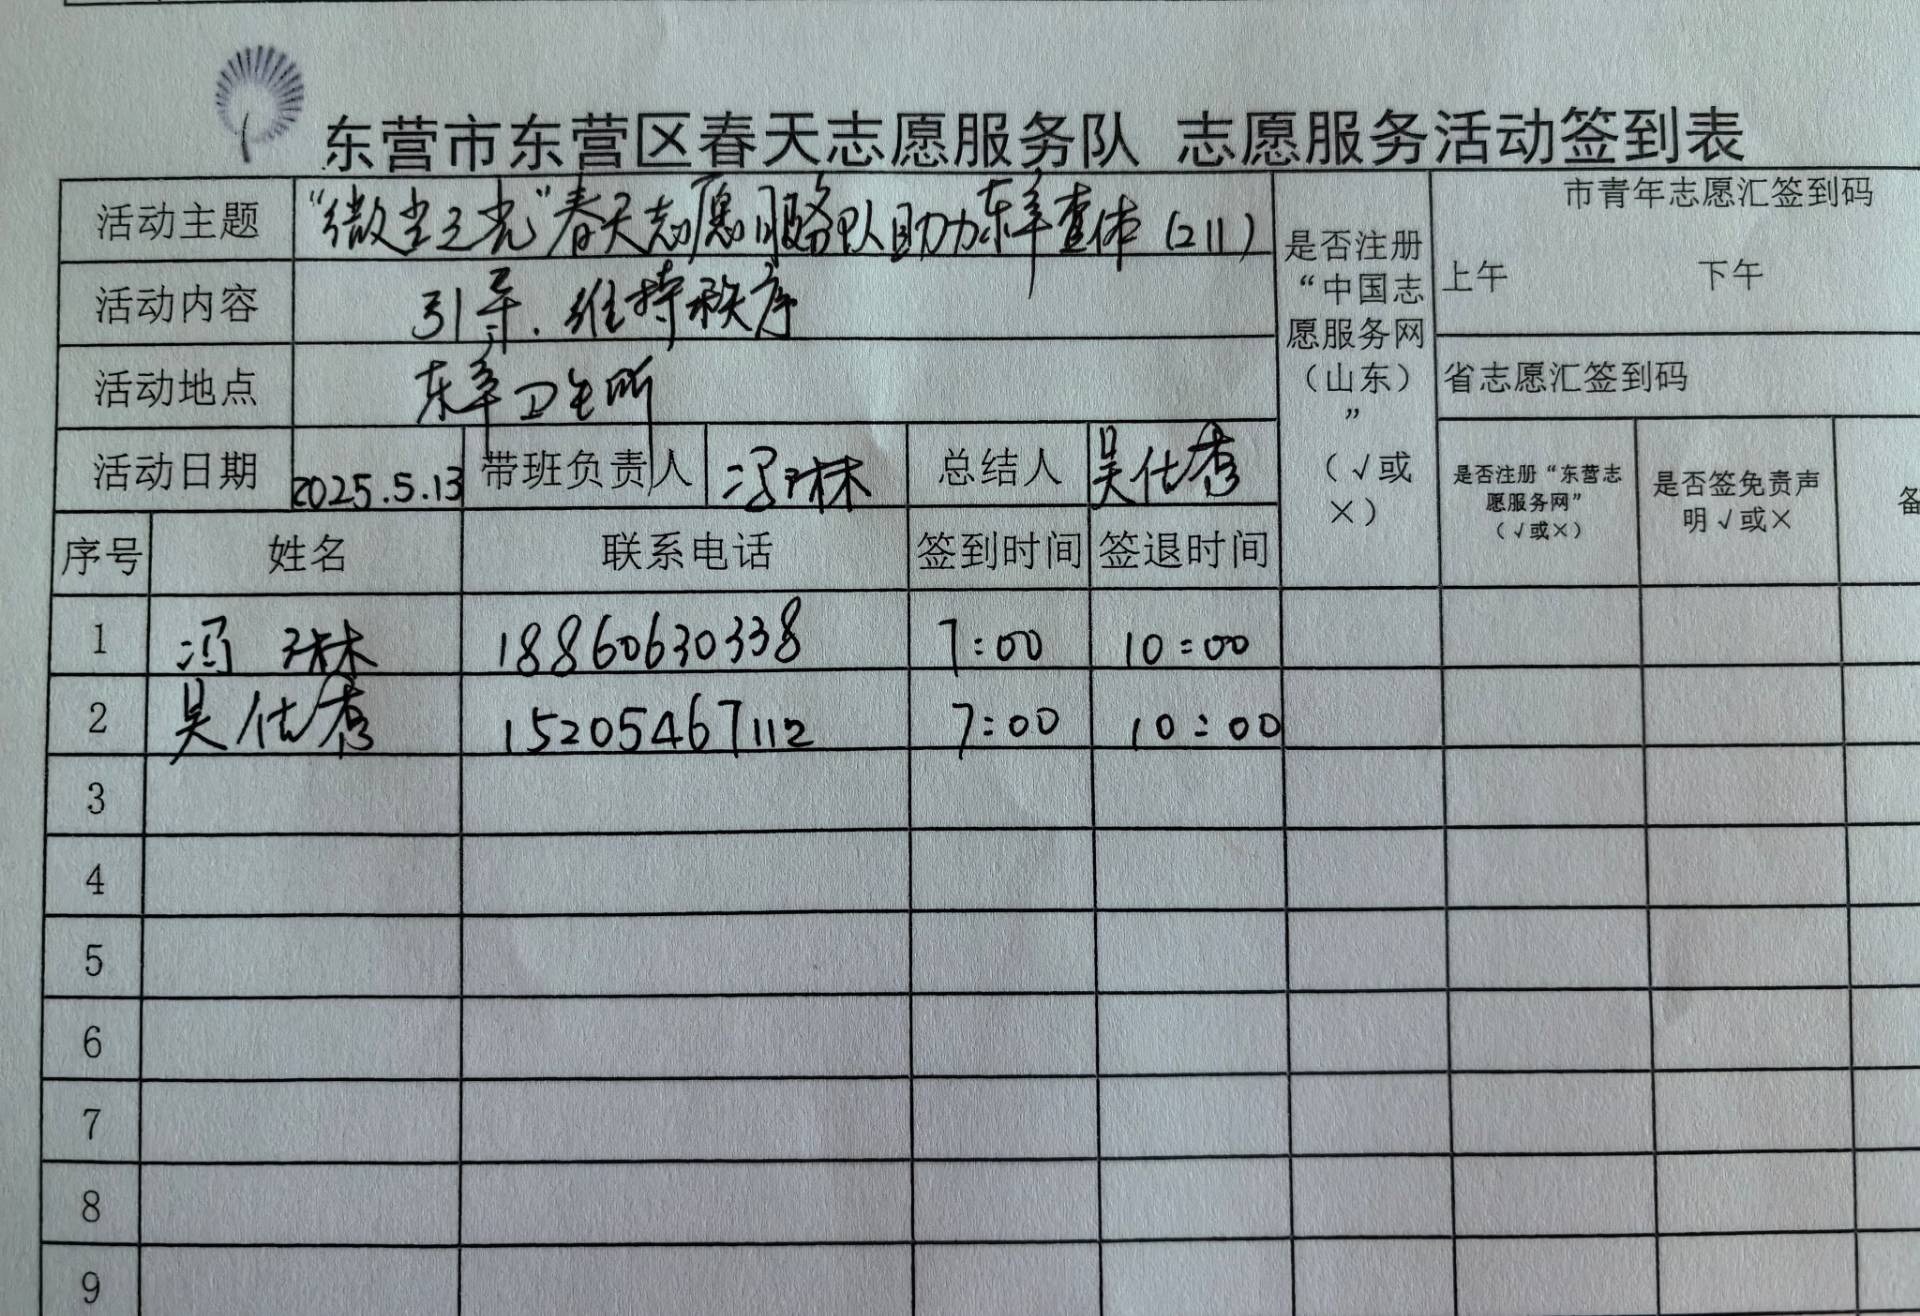 东营市东营区春天志愿服务队 志愿服务活动签到表
活动主题 “微尘之光”春天志愿服务队助力东辛查体(211)
活动内容 引导、维持秩序
活动地点 东辛卫生所
活动日期 2025.5.13 带班负责人 冯琳 总结人 吴仕秀
是否注册
“中国志
愿服务网
（山东）
”
（√或
×）
市青年志愿汇签到码
上午 下午
省志愿汇签到码
是否注册“东营志
愿服务网”
（√或×）
是否签免责声
明√或×
备
序号 姓名 联系电话 签到时间 签退时间
1 冯琳 18860630338 7:00 10:00
2 吴仕秀 15205467112 7:00 10:00
3
4
5
6
7
8
9